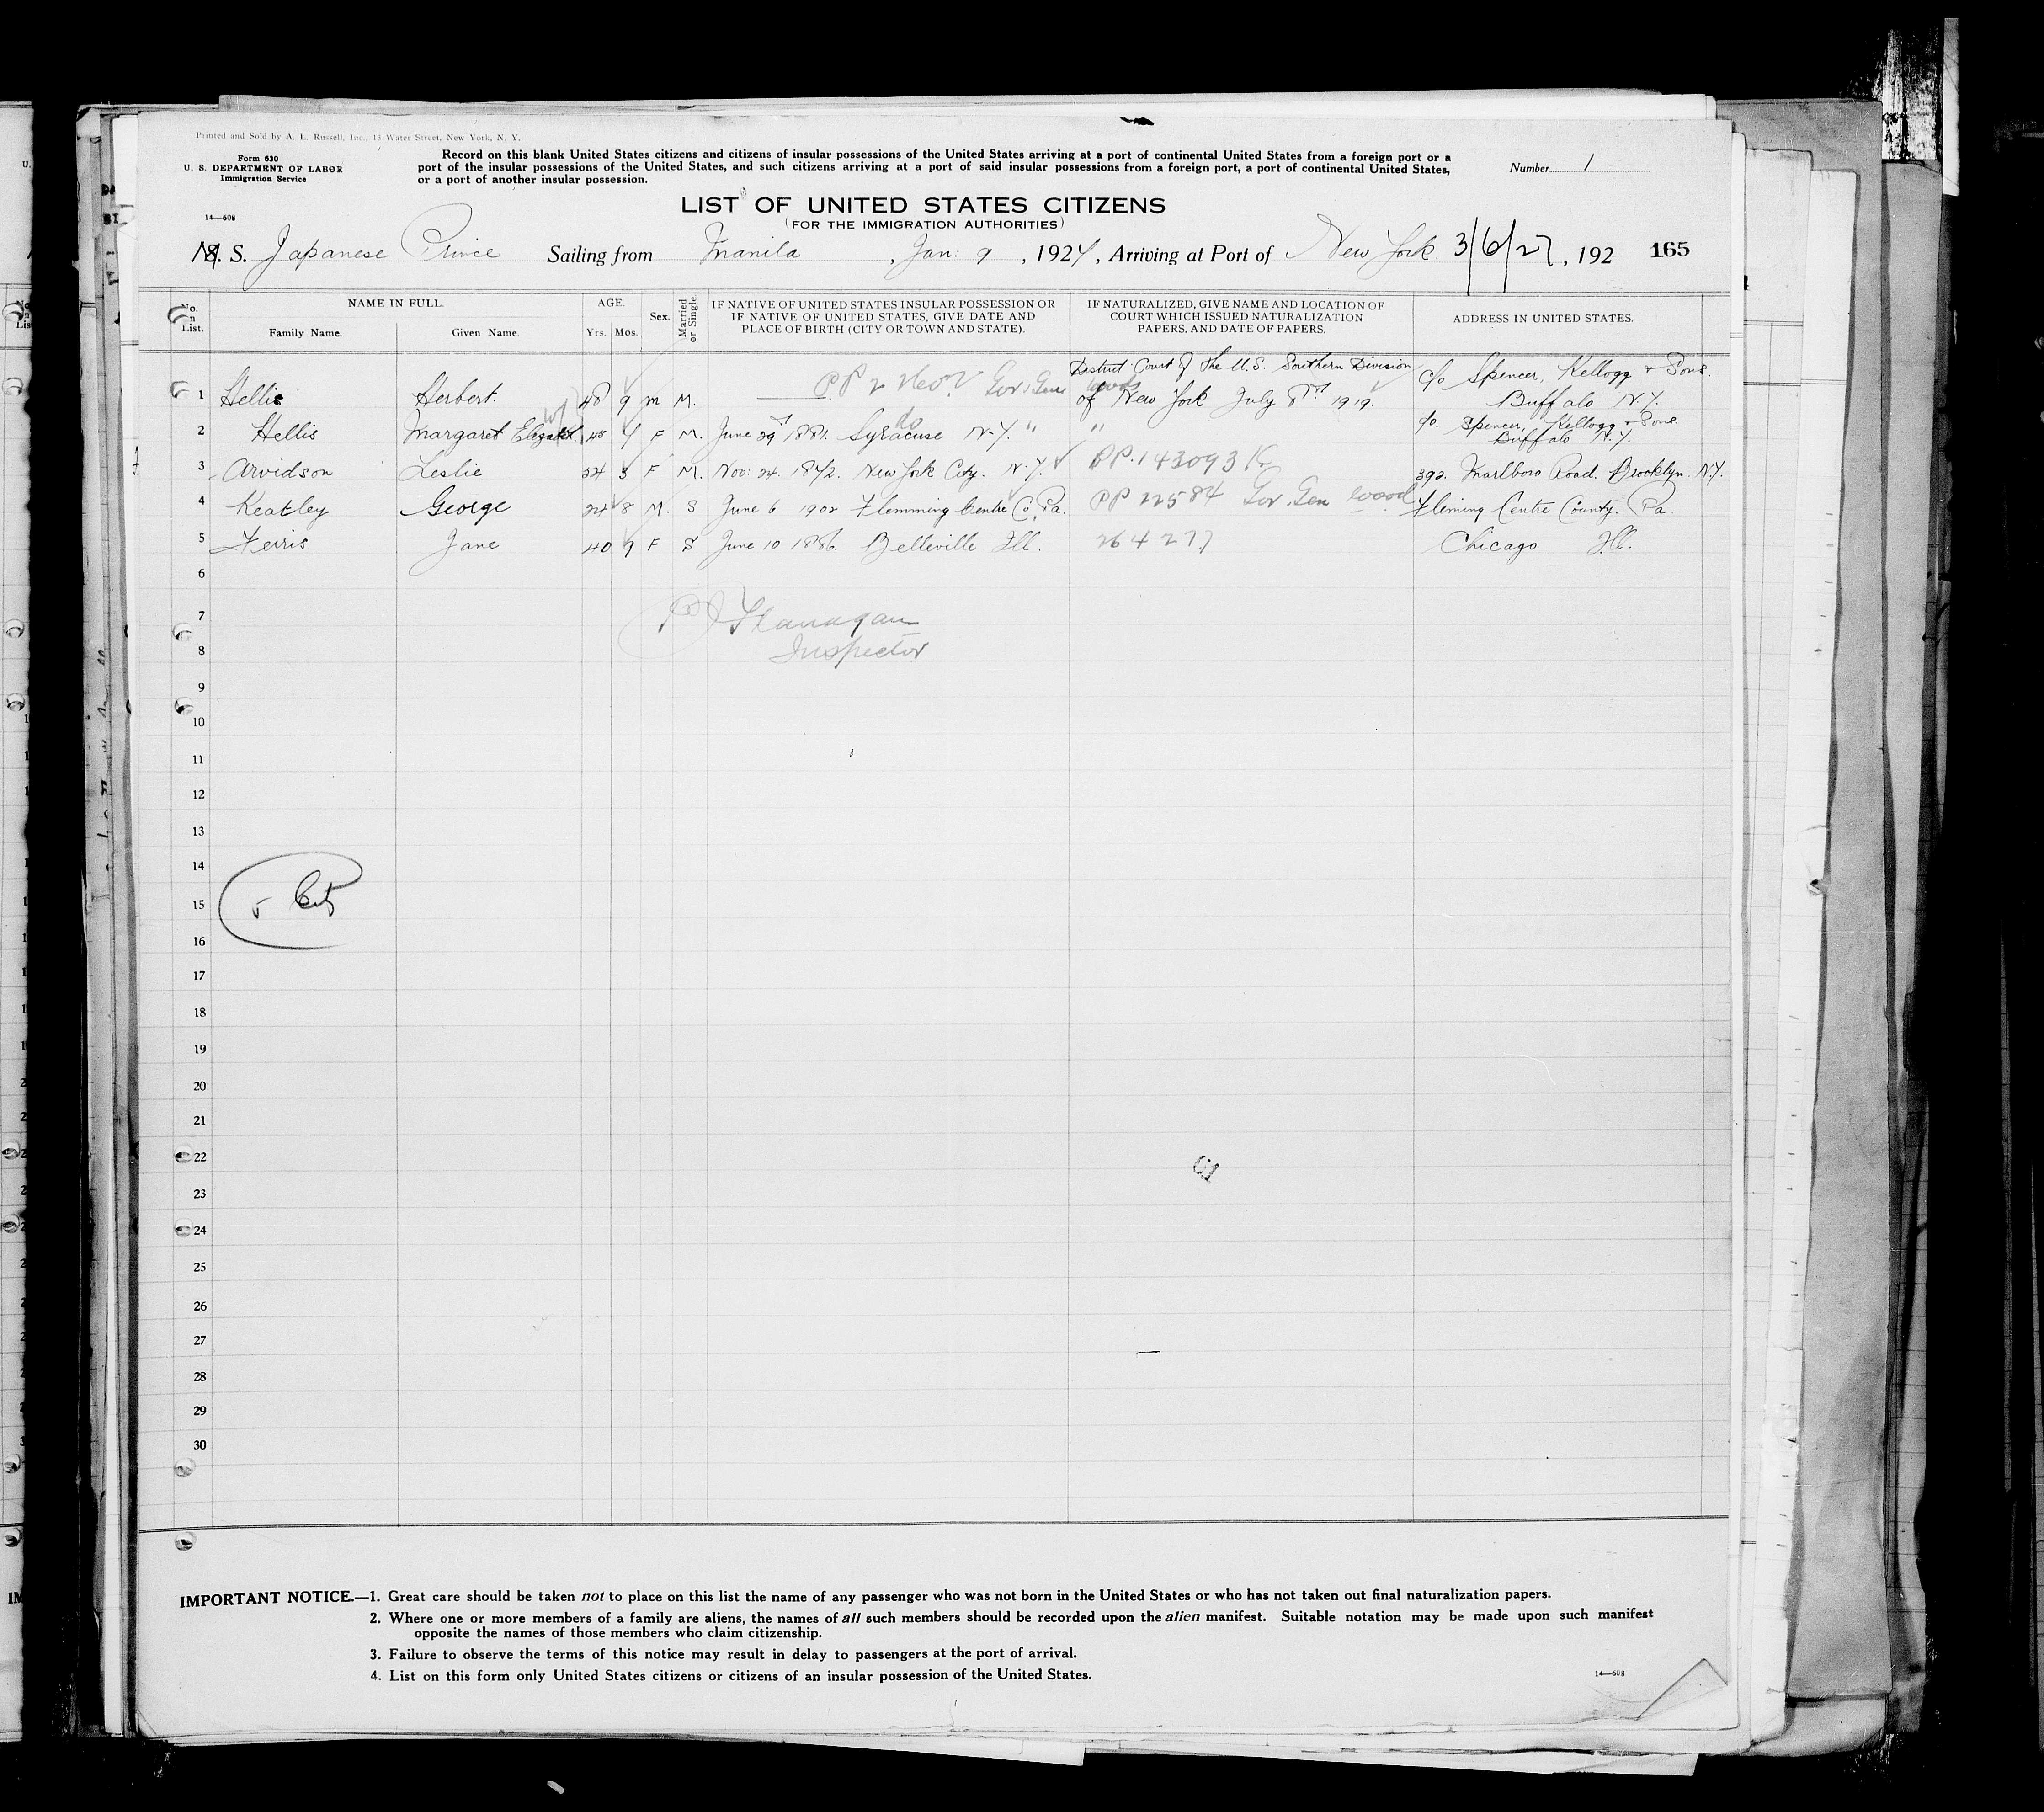 Printed and Sold by A. L. Russell, Inc., 13 Water Street, New York, N. Y.
Form 630
U. S. DEPARTMENT OF LABOR
Immigration Service
14—608
Record on this blank United States citizens and citizens of insular possessions of the United States arriving at a port of continental United States from a foreign port or a
port of the insular possessions of the United States, and such citizens arriving at a port of said insular possessions from a foreign port, a port of continental United States,
or a port of another insular possession.
Number 1
LIST OF UNITED STATES CITIZENS
(FOR THE IMMIGRATION AUTHORITIES)
M. S. Japanese Prince Sailing from Manila, Jan: 9, 1927, Arriving at Port of New York. 3/6/27, 192 165
No. on List.
NAME IN FULL.
Family Name. Given Name.
AGE.
Yrs. Mos.
Sex.
Married or Single.
IF NATIVE OF UNITED STATES INSULAR POSSESSION OR
IF NATIVE OF UNITED STATES, GIVE DATE AND
PLACE OF BIRTH (CITY OR TOWN AND STATE).
IF NATURALIZED, GIVE NAME AND LOCATION OF
COURT WHICH ISSUED NATURALIZATION
PAPERS, AND DATE OF PAPERS.
ADDRESS IN UNITED STATES.
1 Hellis Herbert. 48 9 m M. PP Gov. Gen Wood District Court of the U.S. Southern Division
of New York July 8th 1919. c/o Spencer, Kellogg & Sons.
Buffalo N.Y.
2 Hellis Margaret Elizabeth wf 45 F M. June 29 1881. Syracuse N.Y. " do " c/o. Spencer, Kellogg & Sons.
Buffalo N.Y.
3 Arvidson Leslie 34 3 F M. Nov: 24. New York City. N.Y. PP. 143093 392. Marlboro Road. Brooklyn. N.Y.
4 Keatley George 24 8 M. S June 6 1902 Flemming Centre Co. Pa. PP 22584 Gov. Gen Wood Fleming Centre County. Pa.
5 Ferris Jane 40 9 F S June 10 1886. Belleville Ill. 264277 Chicago Ill.
6
7
P J Flanagan
8
Inspector
9
10
11
12
13
14
15 5 Cit
16
17
18
19
20
21
22
23
24
25
26
27
28
29
30
IMPORTANT NOTICE.—1. Great care should be taken not to place on this list the name of any passenger who was not born in the United States or who has not taken out final naturalization papers.
2. Where one or more members of a family are aliens, the names of all such members should be recorded upon the alien manifest. Suitable notation may be made upon such manifest
opposite the names of those members who claim citizenship.
3. Failure to observe the terms of this notice may result in delay to passengers at the port of arrival.
4. List on this form only United States citizens or citizens of an insular possession of the United States.
14—608